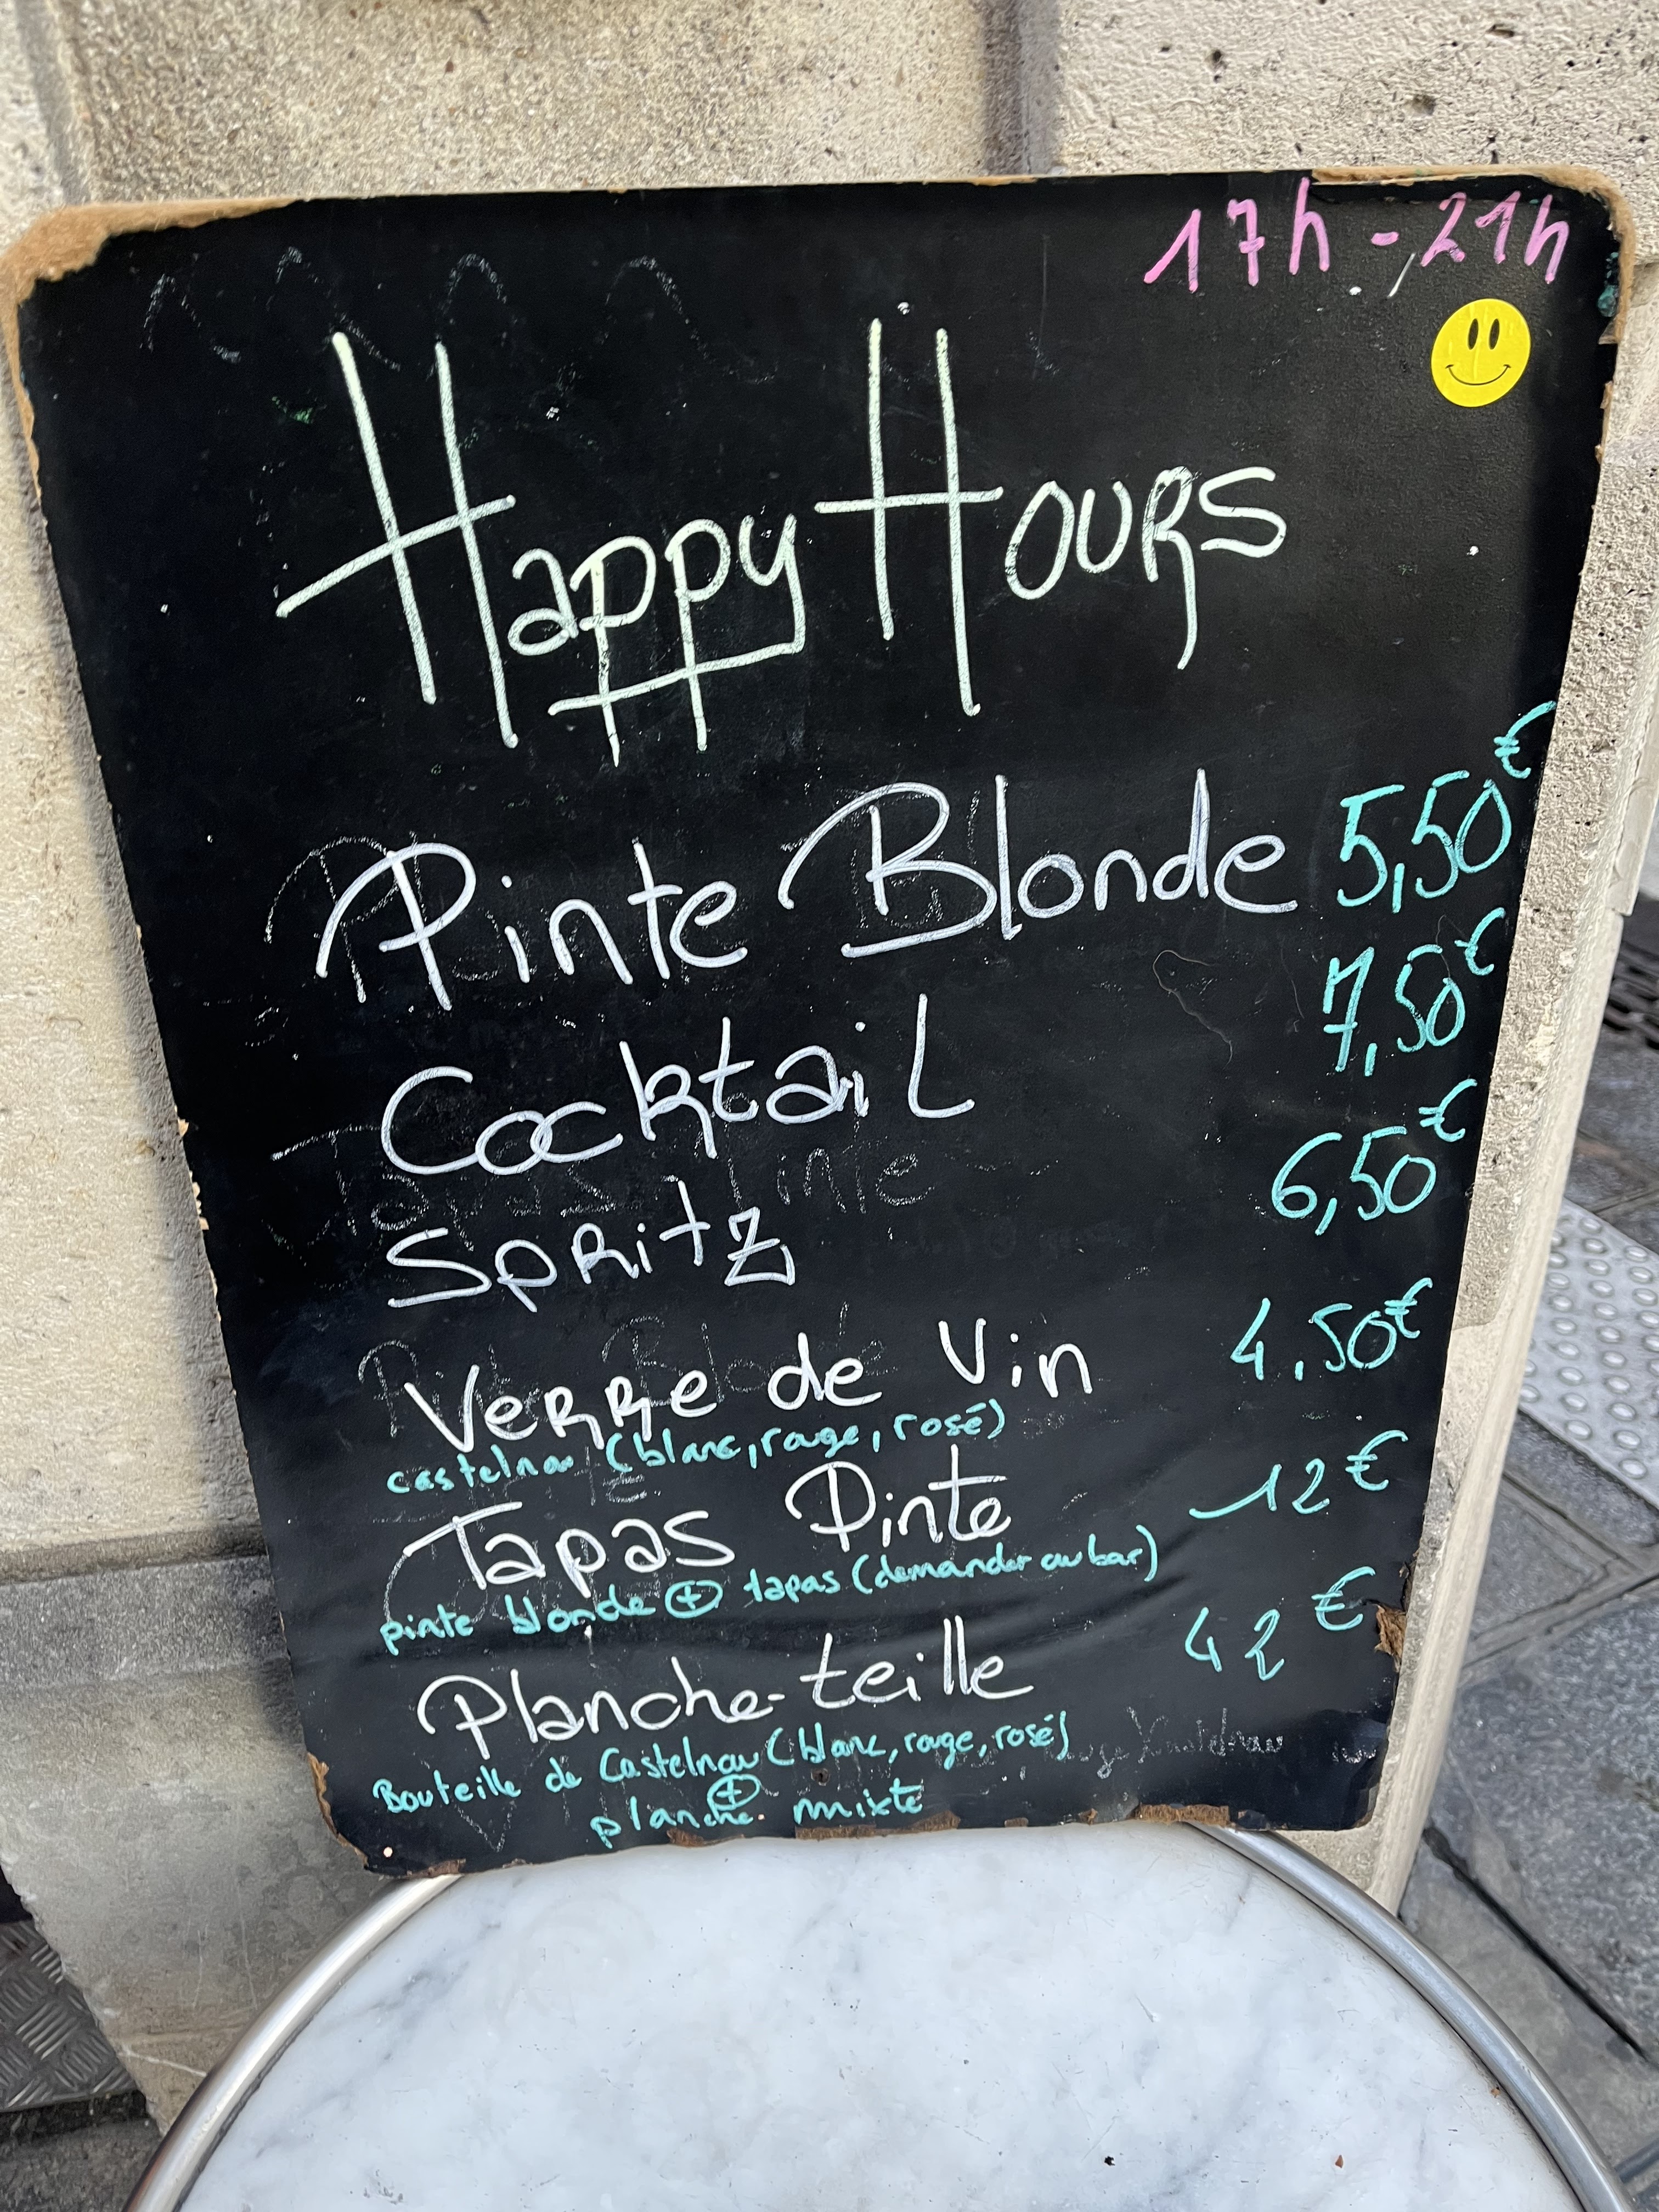 17h - 21h
Happy Hours
Pinte Blonde 5,50€
Cocktail 7,50€
Spritz 6,50€
Verre de Vin 4,50€
castelnau (blanc, rouge, rosé)
Tapas Pinte 12€
pinte blonde + tapas (demander au bar)
Planche-teille 42€
Bouteille de Castelnau (blanc, rouge, rosé)
+
planche mixte